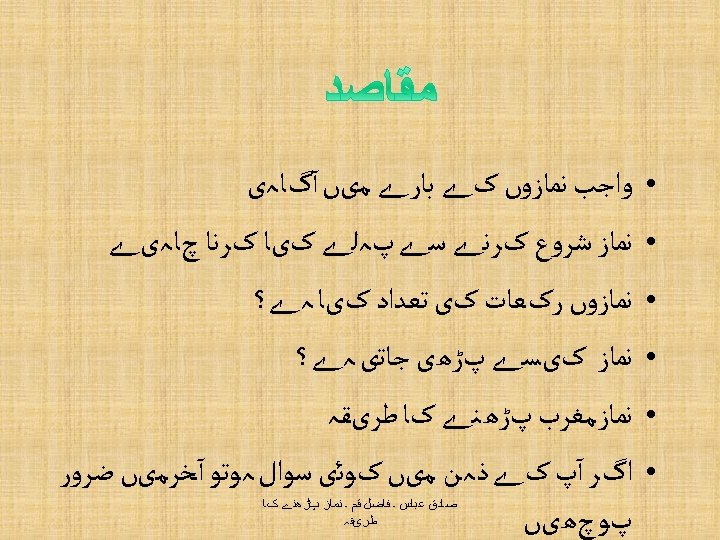 مقاصد
• واجب نمازوں کے بارے میں آگاہی
• نماز شروع کرنے سے پہلے کیا کرنا چاہیے
• نمازوں رکعات کی تعداد کیا ہے ؟
• نماز کیسے پڑھی جاتی ہے ؟
• نمازمغرب پڑھنے کا طریقہ
• اگر آپ کے ذہن میں کوئی سوال ہوتو آخرمیں ضرور
پوچھیں
صادق عباس ۔ فاضل قم ۔ نماز پڑھنے کا
طریقہ